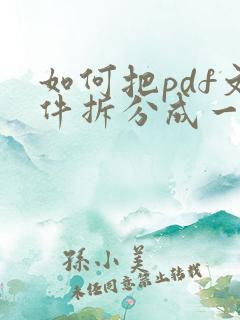 如何把pdf文
件拆分成一
孙小美
未经同意禁止转载